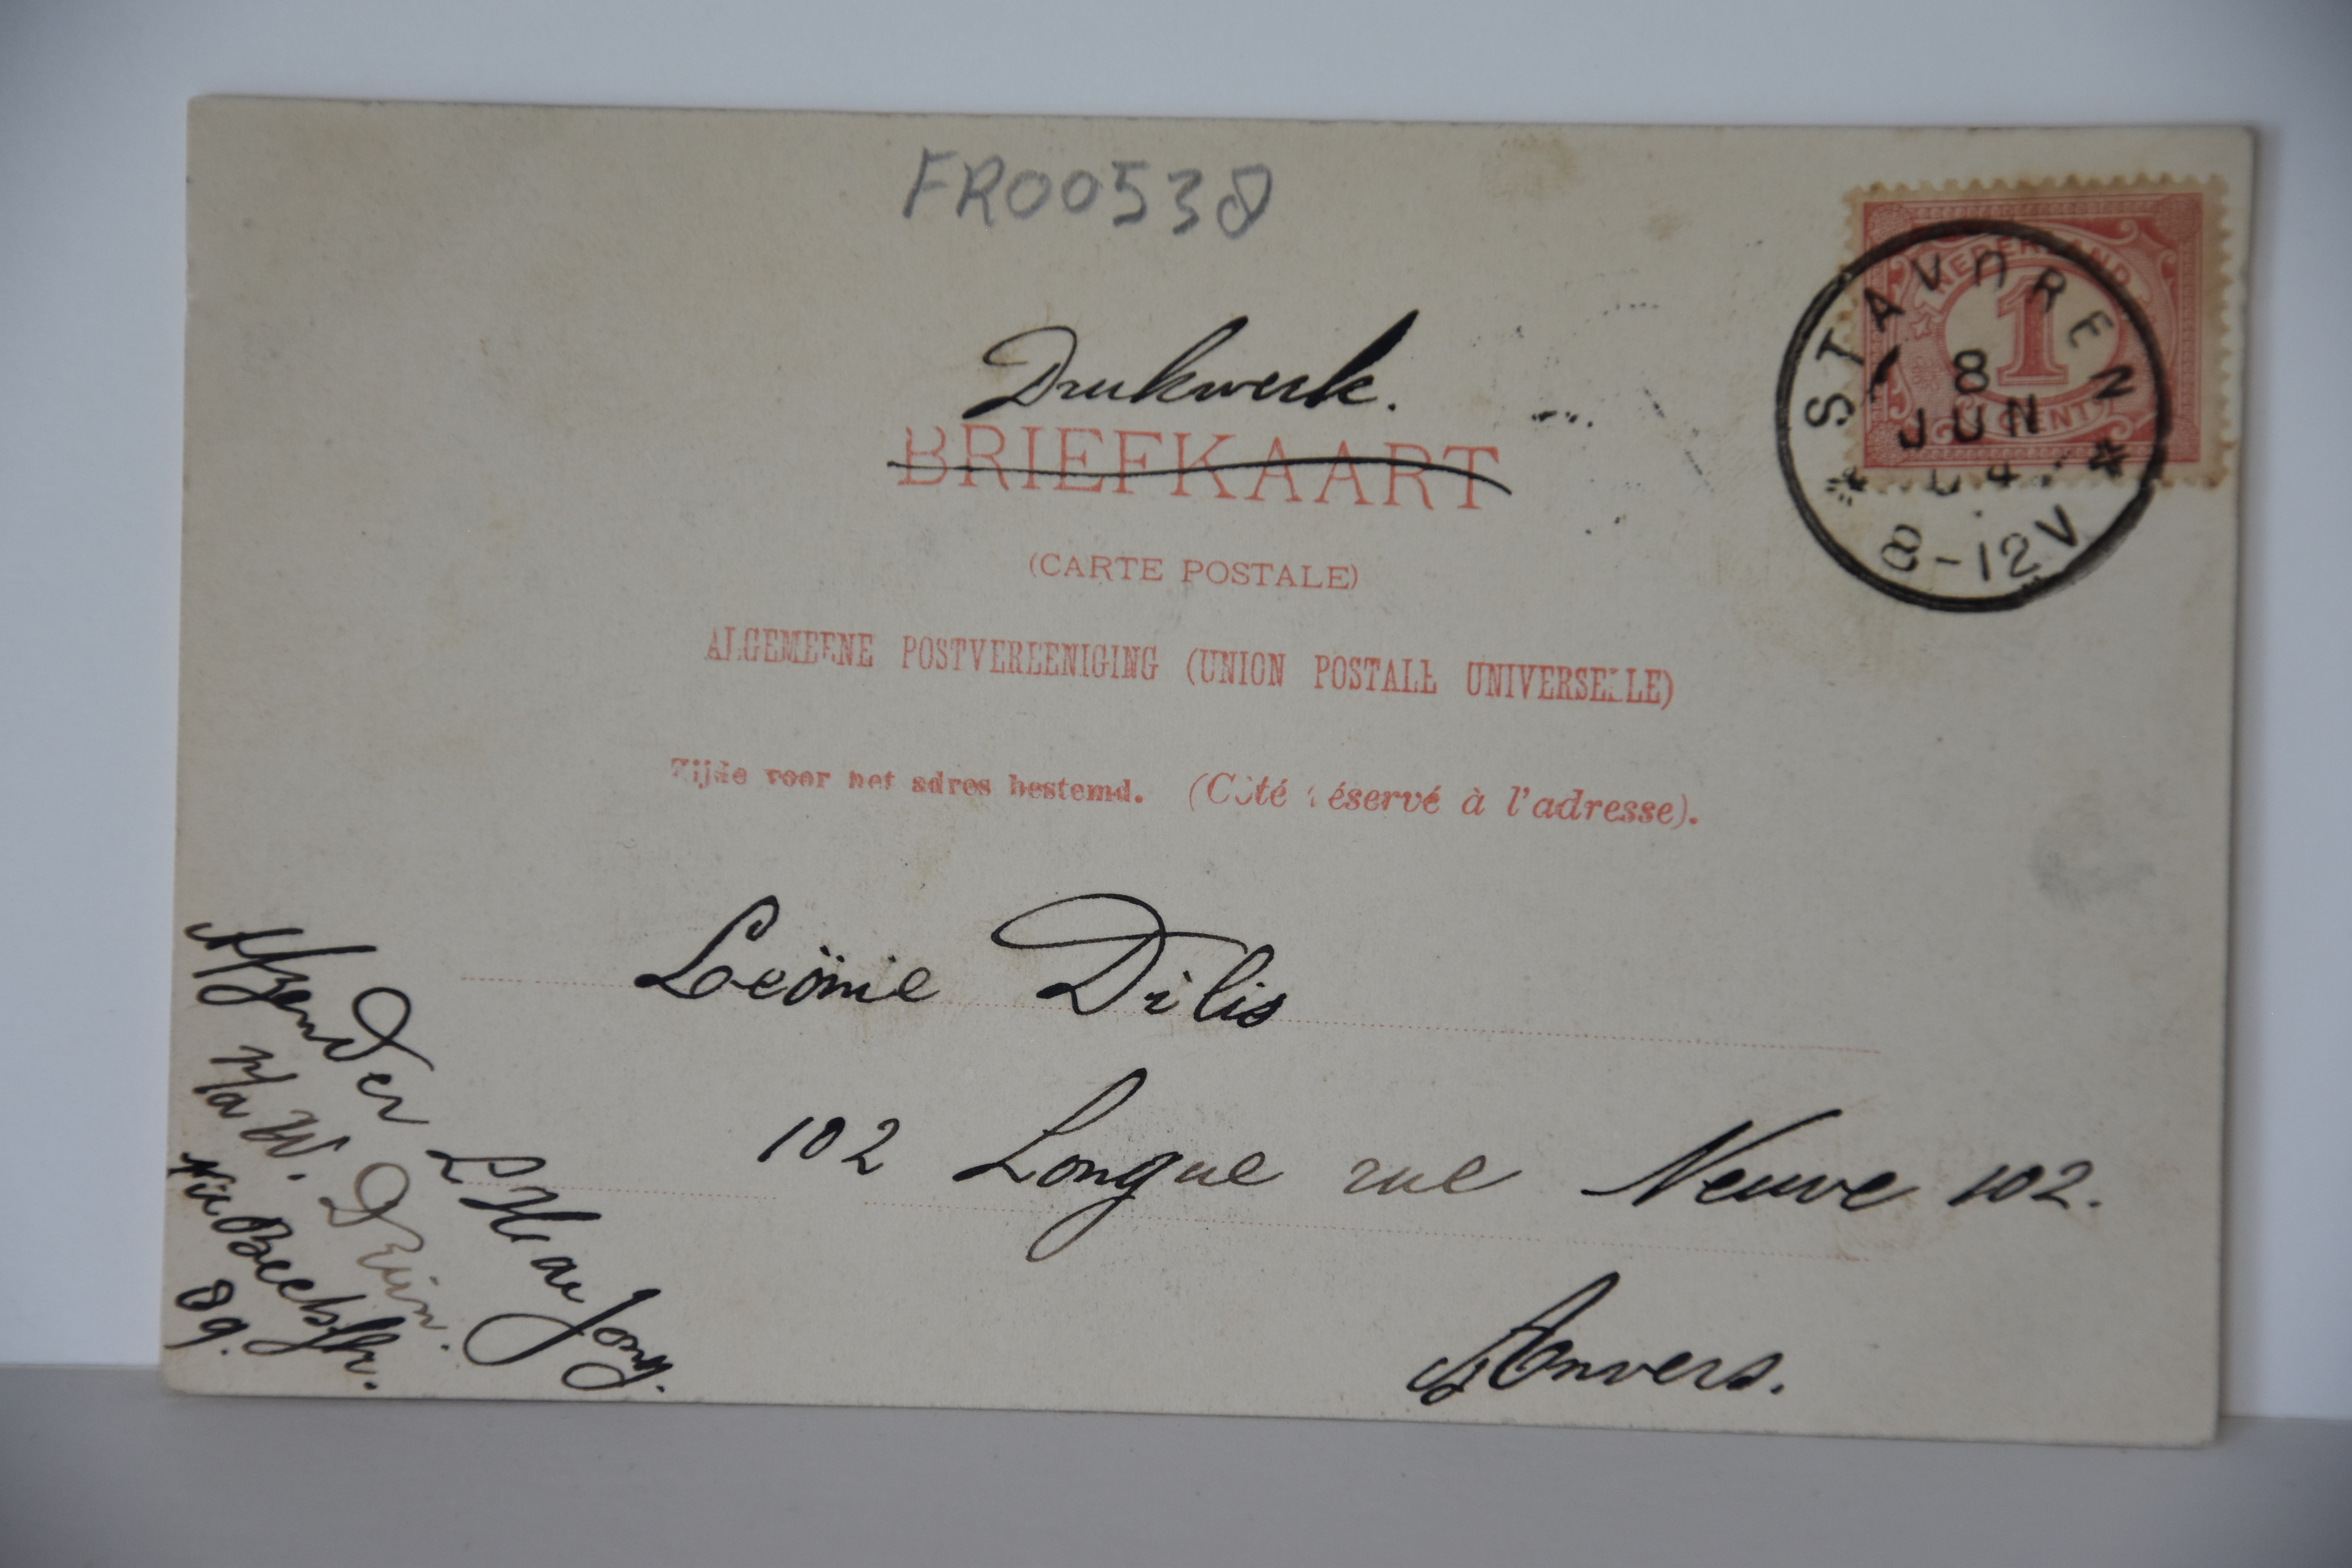 FR00538
NEDERLAND
1
CENT
STAVOREN
8
JUN
04
8-12V
Drukwerk.
BRIEFKAART
(CARTE POSTALE)
ALGEMEENE POSTVEREENIGING (UNION POSTALE UNIVERSELLE)
Zijde voor het adres bestemd. (Côté réservé à l'adresse).
Leönie Dilis
102 Longue rue Neuve 102.
Anvers.
Afzender
p/a W.
89.